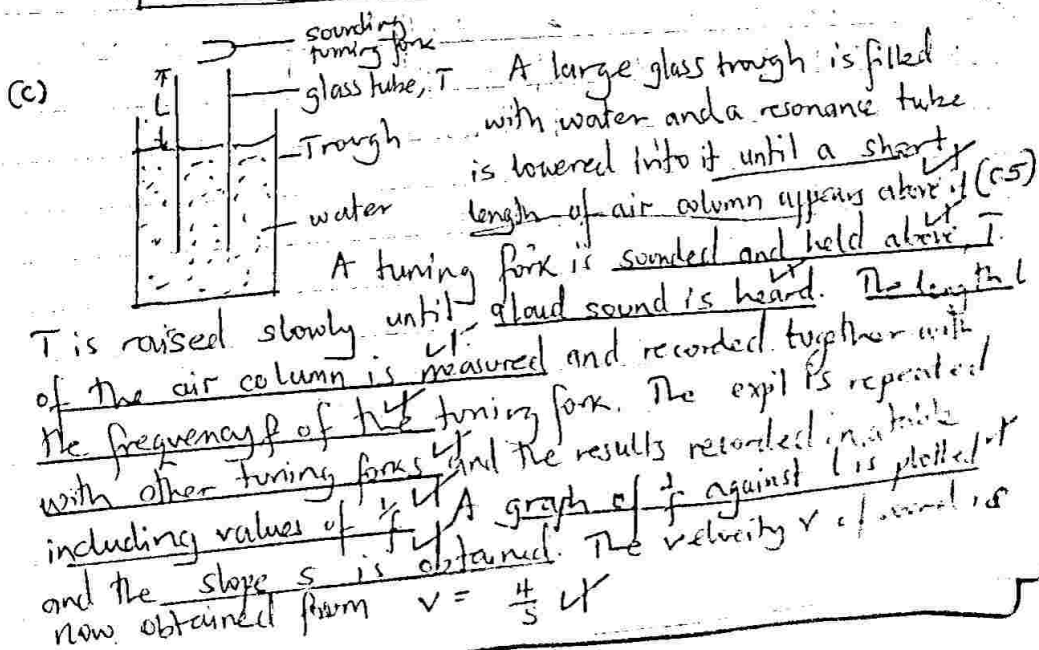 sounding
tuning fork
(c)
glass tube, T
L
Trough
water
A large glass trough is filled
with water and a resonance tube
is lowered into it until a short
length of air column appears above it (05)
A tuning fork is sounded and held above T.
T is raised slowly until a loud sound is heard. The length l
of the air column is measured and recorded together with
the frequency f of the tuning fork. The expt is repeated
with other tuning forks and the results recorded in a table
including values of 1/f. A graph of 1/f against l is plotted
and the slope s is obtained. The velocity v of sound is
now obtained from v = 4/s